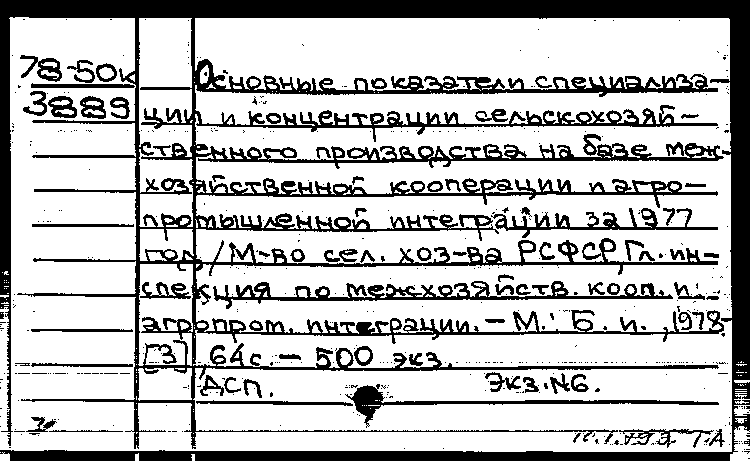 78-50к
3889
Основные показатели специализа-
ции и концентрации сельскохозяй-
ственного производства на базе меж-
хозяйственной кооперации и агро-
промышленной интеграции за 1977
год / М-во сел. хоз-ва РСФСР, Гл. ин-
спекция по межхозяйств. кооп. и
агропром. интеграции. - М.: Б. и., 1978.-
[3], 64с. - 500 экз.
ДСП. Экз. №6.